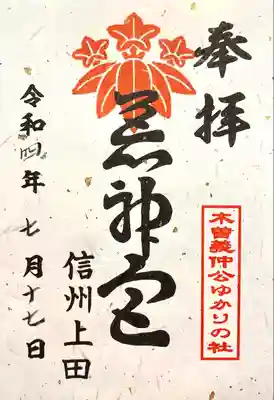 奉拝
木曽義仲公ゆかりの社
荒神宮
信州上田
令和四年 七月十七日